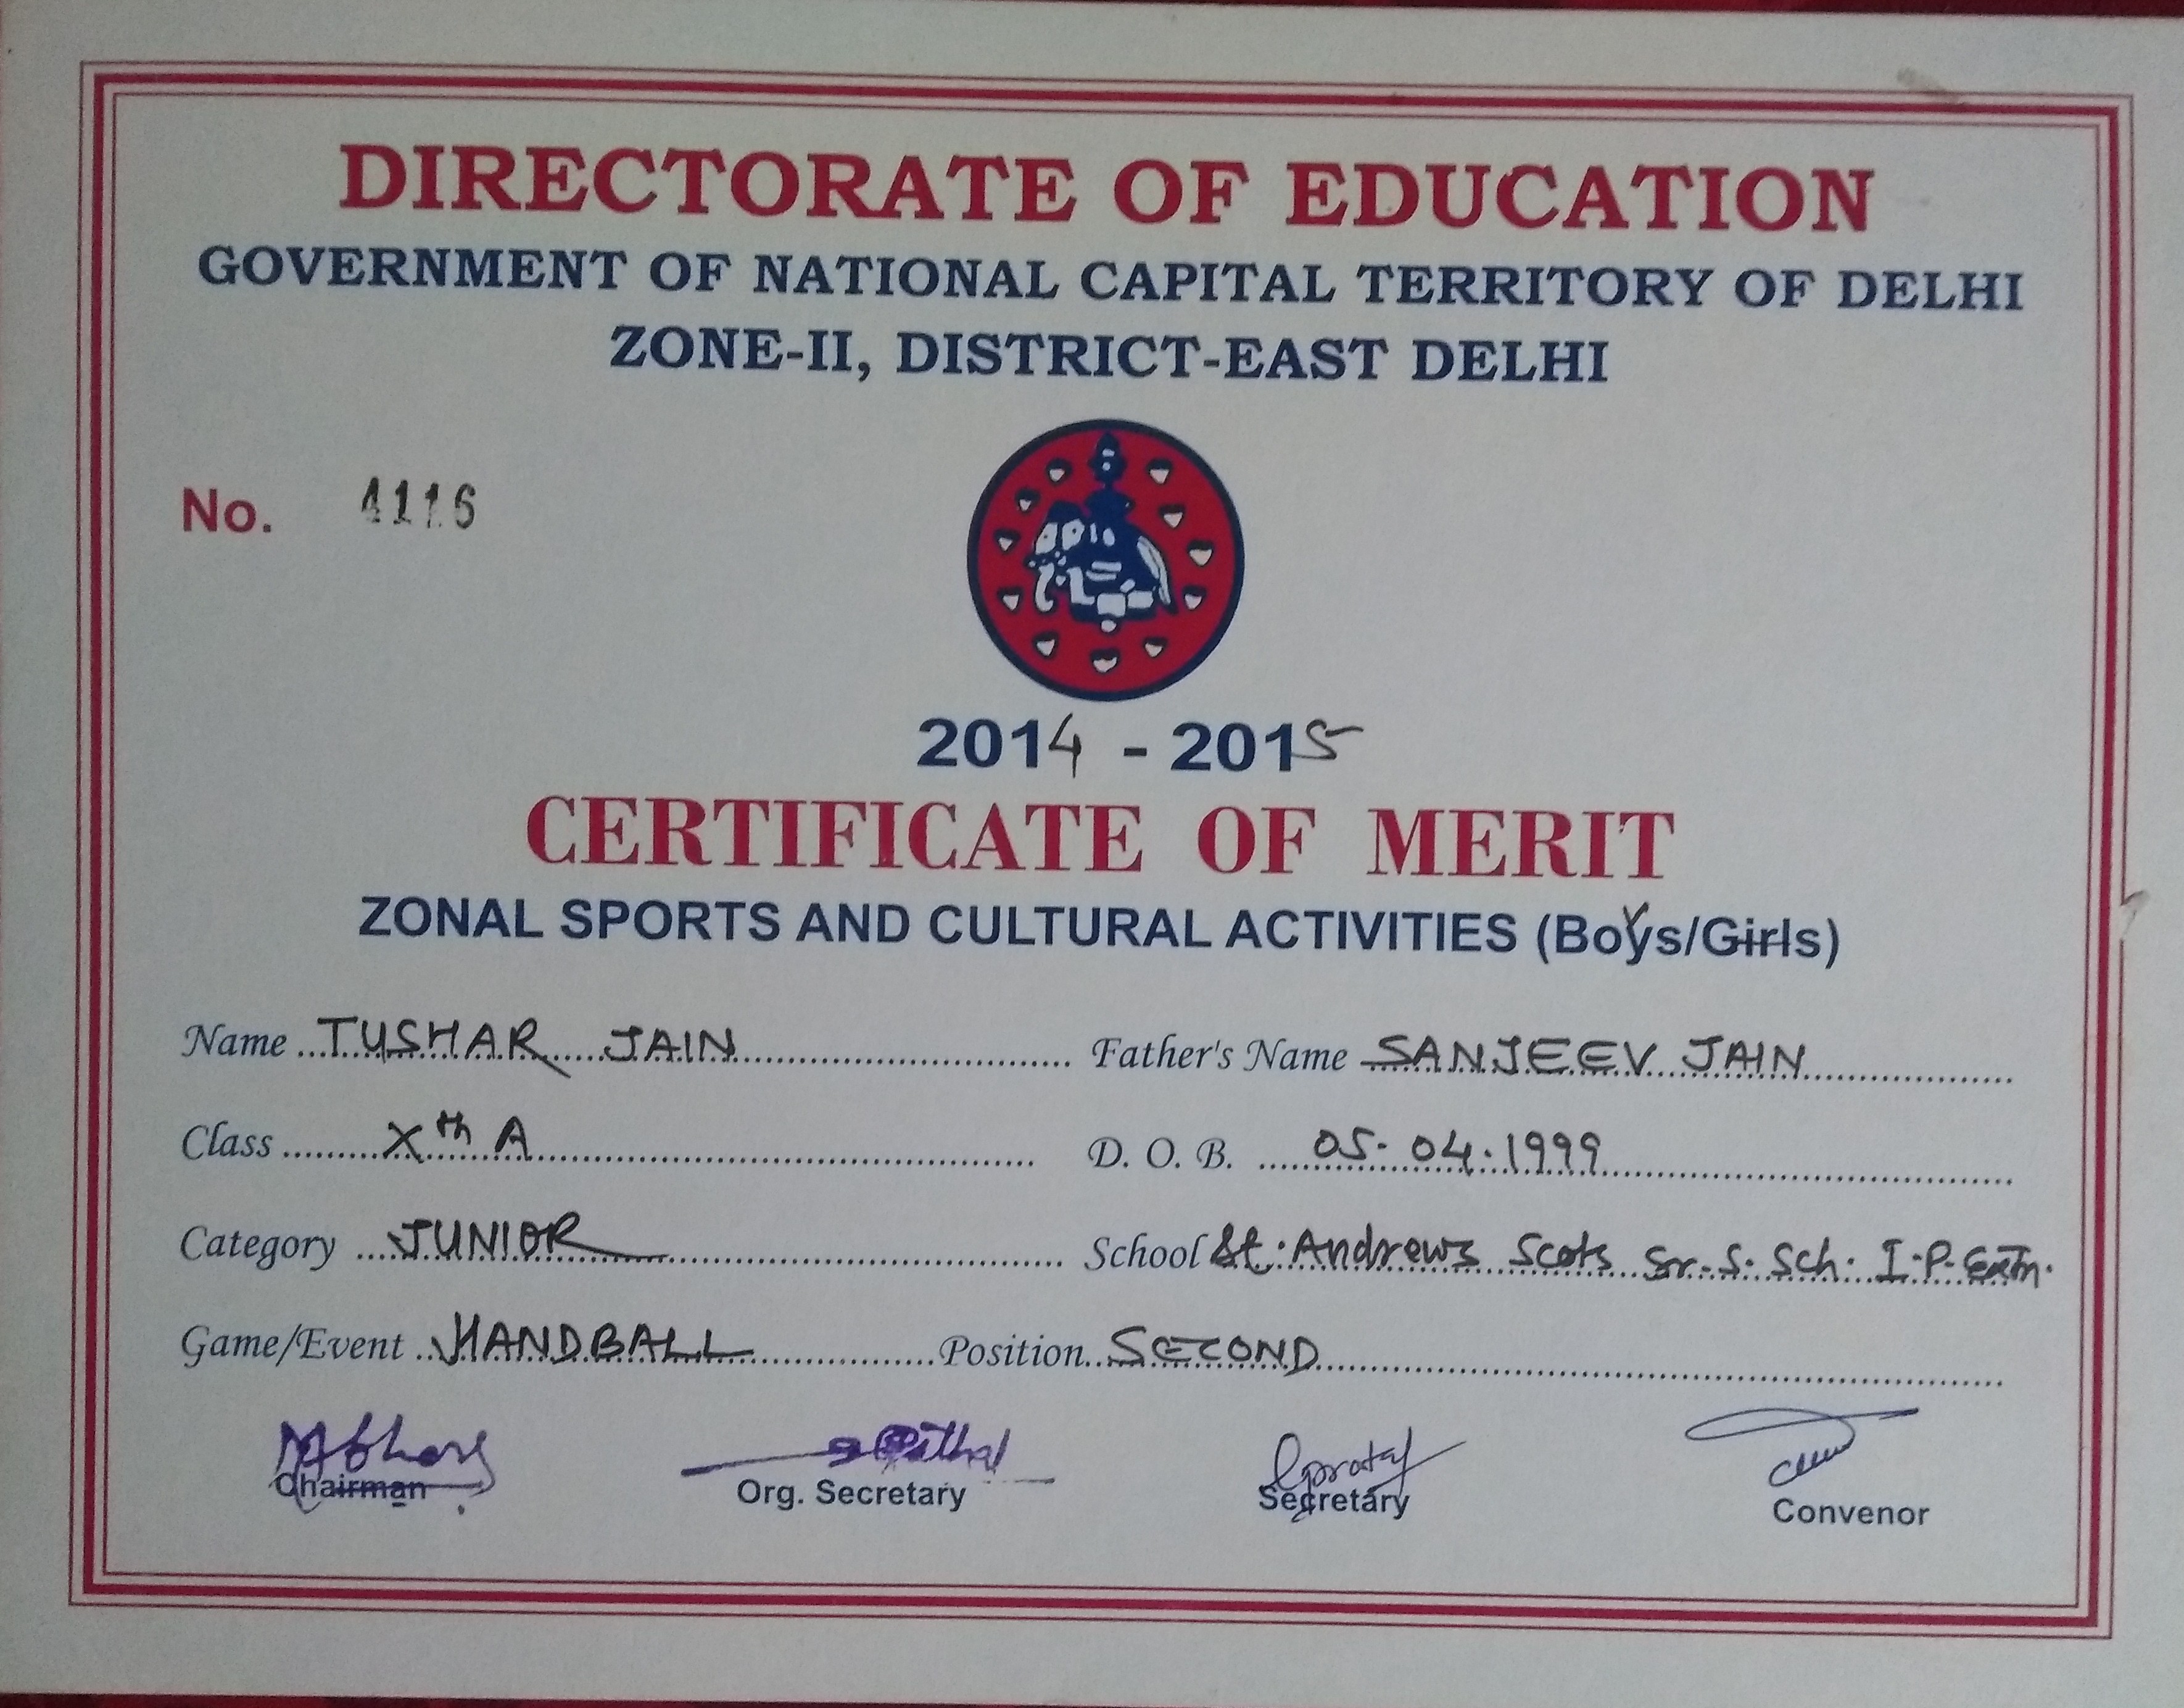 DIRECTORATE OF EDUCATION
GOVERNMENT OF NATIONAL CAPITAL TERRITORY OF DELHI
ZONE-II, DISTRICT-EAST DELHI
No. 4116
2014 - 2015
CERTIFICATE OF MERIT
ZONAL SPORTS AND CULTURAL ACTIVITIES (Boys/Girls)
Name TUSHAR JAIN Father's Name SANJEEV JAIN
Class Xth A D. O. B. 05.04.1999
Category JUNIOR School St. Andrews Scots Sr. S. Sch. I.P. Extn.
Game/Event HANDBALL Position SECOND
Chairman Org. Secretary Secretary Convenor